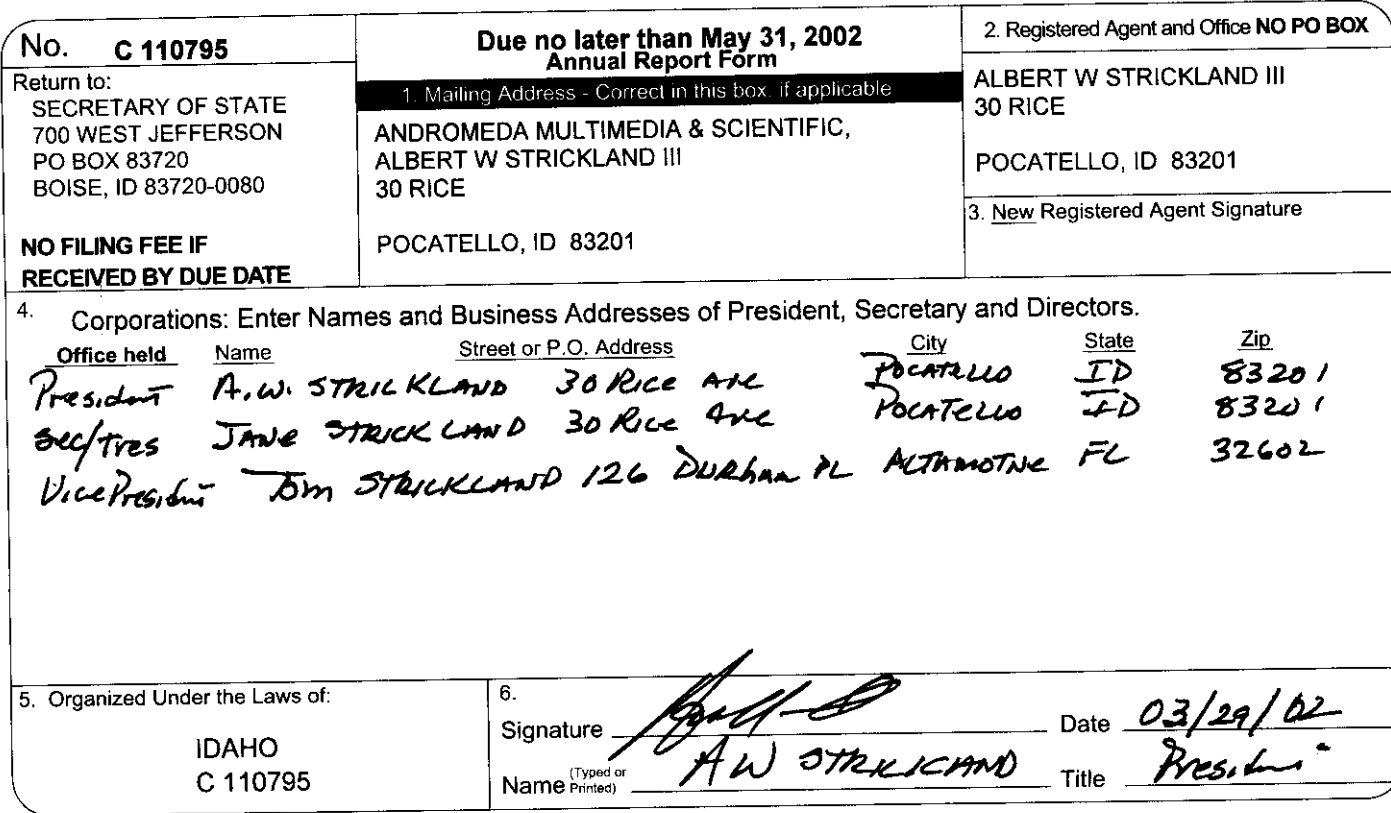 No. C 110795
Return to:
SECRETARY OF STATE
700 WEST JEFFERSON
PO BOX 83720
BOISE, ID 83720-0080
NO FILING FEE IF
RECEIVED BY DUE DATE
Due no later than May 31, 2002
Annual Report Form
1. Mailing Address - Correct in this box, if applicable
ANDROMEDA MULTIMEDIA & SCIENTIFIC,
ALBERT W STRICKLAND III
30 RICE
POCATELLO, ID 83201
2. Registered Agent and Office NO PO BOX
ALBERT W STRICKLAND III
30 RICE
POCATELLO, ID 83201
3. New Registered Agent Signature
4. Corporations: Enter Names and Business Addresses of President, Secretary and Directors.
Office held Name Street or P.O. Address City State Zip
President A.W. STRICKLAND 30 Rice Ave POCATELLO ID 83201
Sec/Tres JANE STRICKLAND 30 Rice Ave POCATELLO ID 83201
Vice President Tom STRICKLAND 126 DURham PL ALTAMOTNE FL 32602
5. Organized Under the Laws of:
IDAHO
C 110795
6.
Signature Date 03/29/02
Name (Typed or Printed) AW STRICKLAND Title President